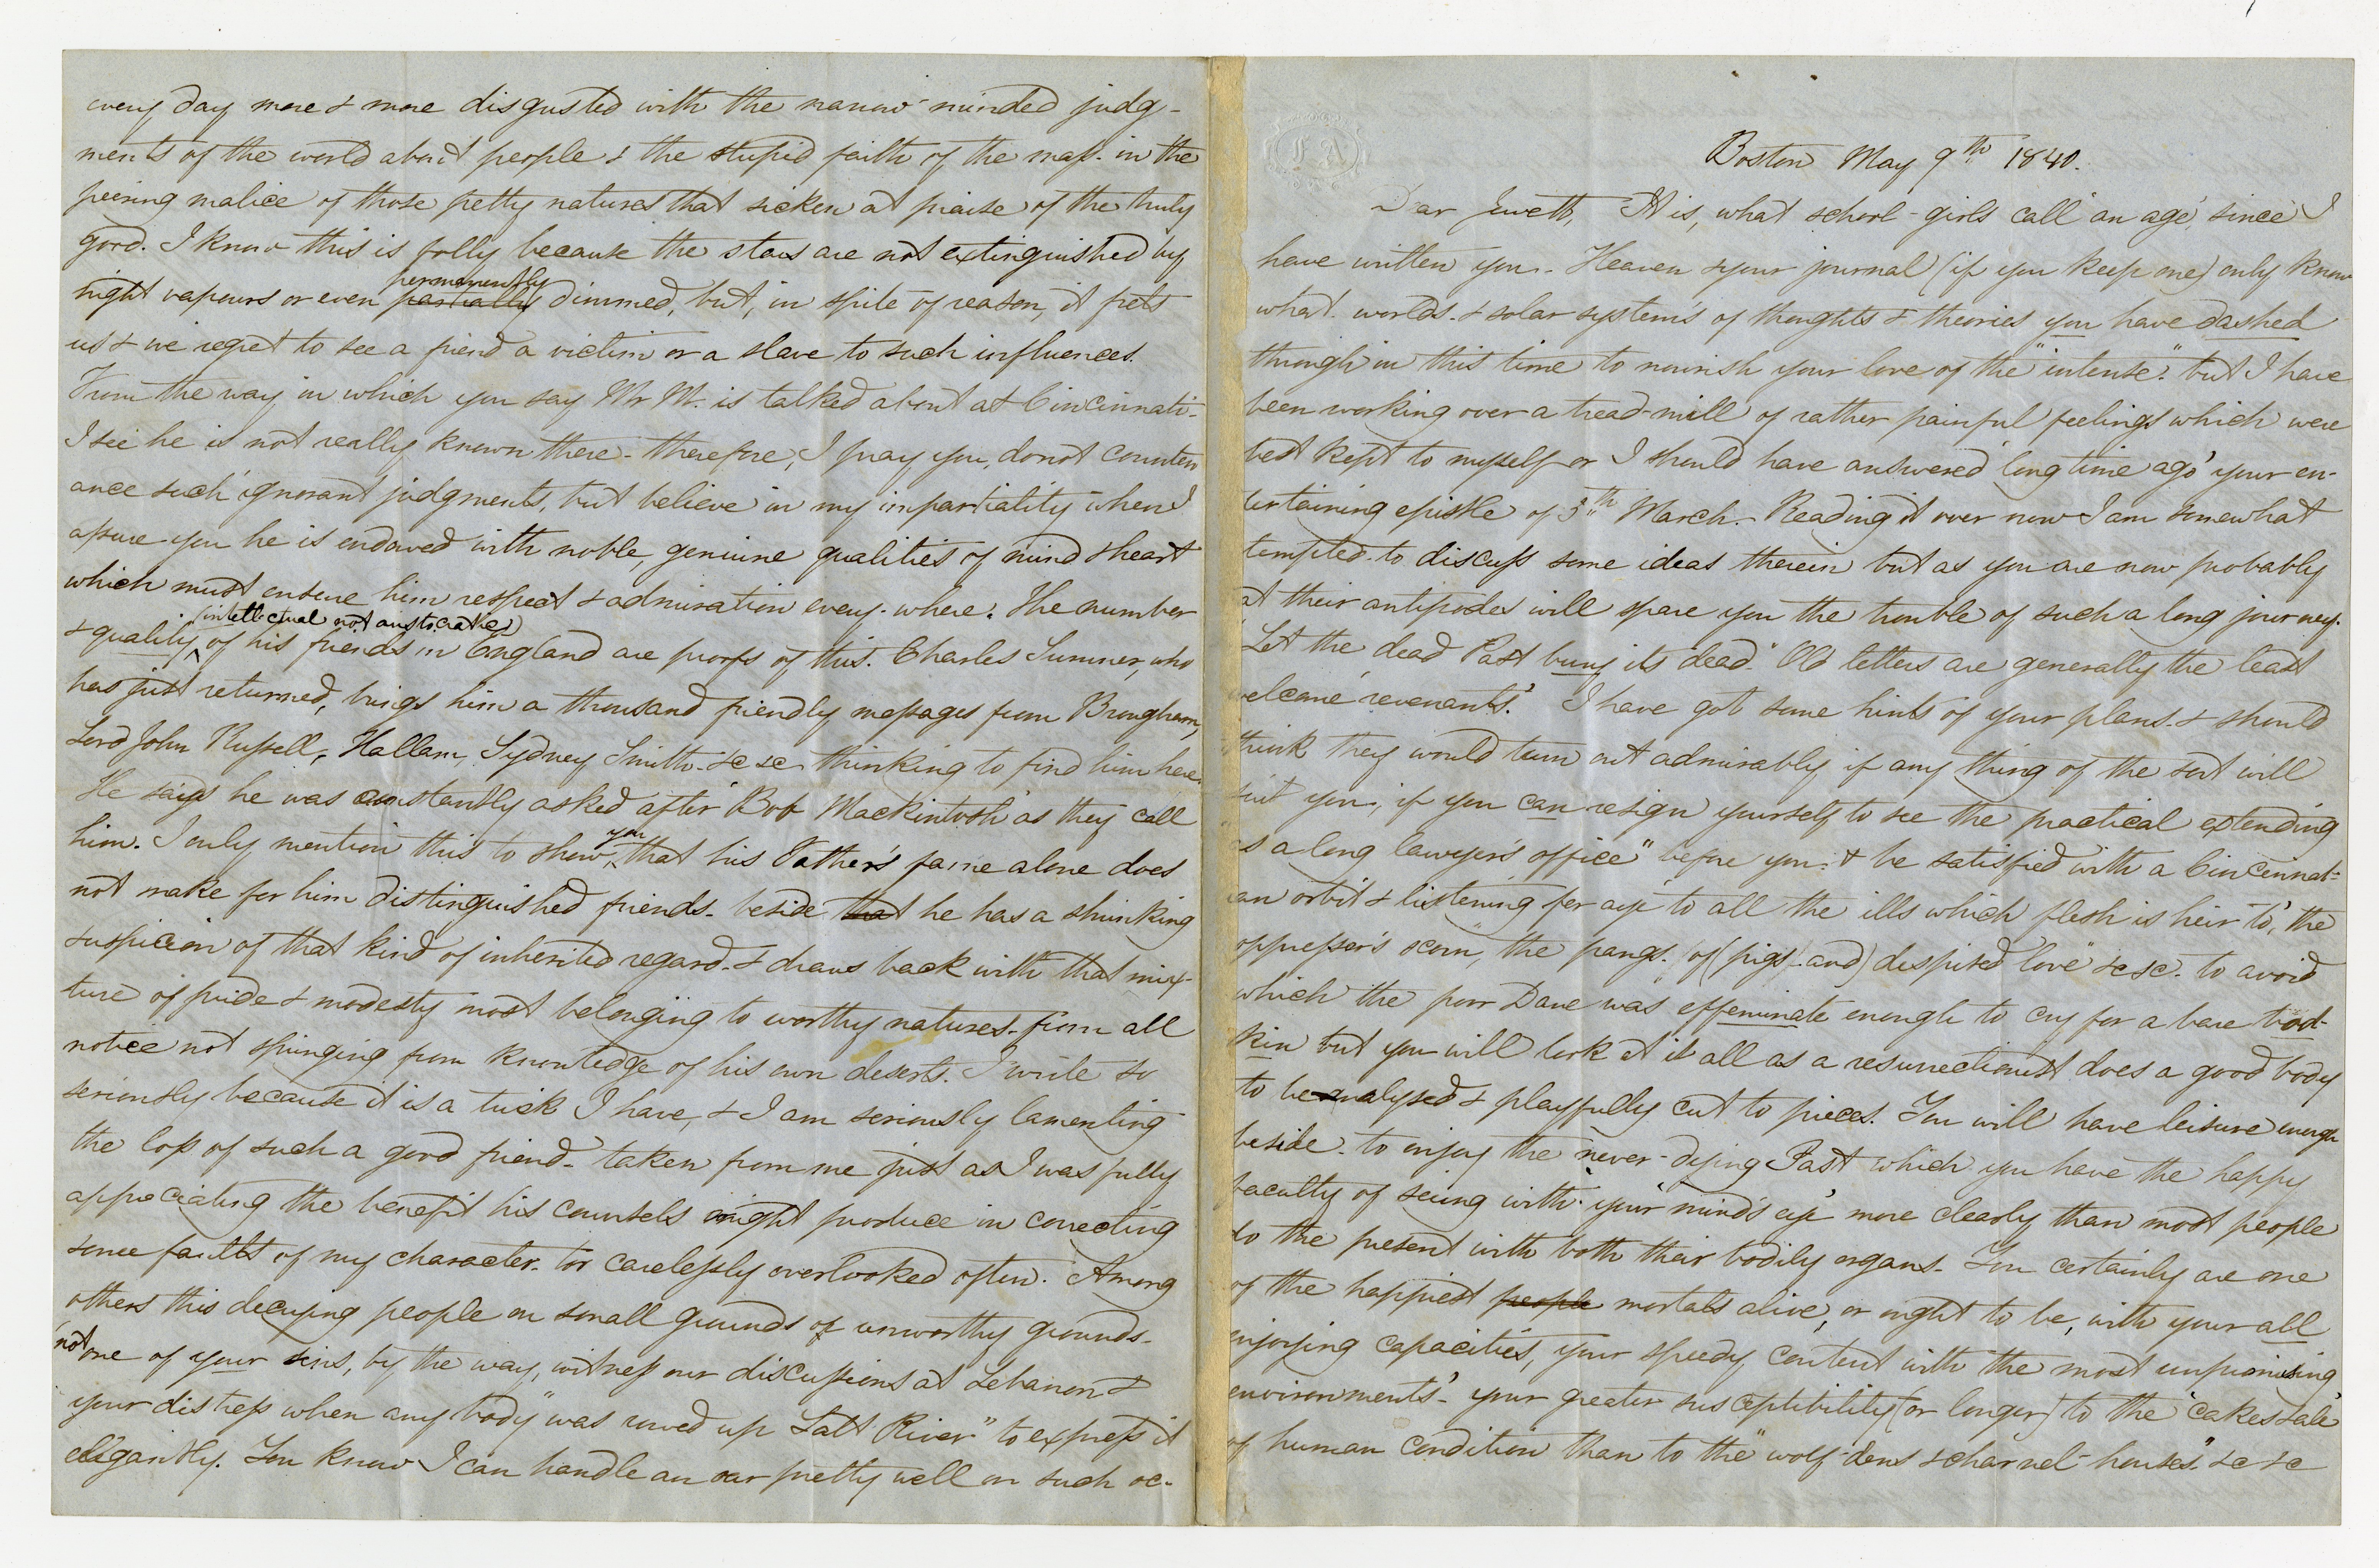 every day more & more disgusted with the narrow-minded judg-
ments of the world about people & the stupid faith of the mass in the
peering malice of those petty natures that sicken at praise of the truly
good. I know this is folly because the stars are not extinguished by
permanently
night vapours or even partially dimmed, but, in spite of reason, it frets
us & we regret to see a friend a victim or a slave to such influences.
From the way in which you say Mr M. is talked about at Cincinnati-
I see he is not really known there- therefore, I pray you, do not counten
ance such ignorant judgments, but believe in my impartiality when I
assure you he is endowed with noble, genuine qualities of mind & heart
which must ensure him respect & admiration every-where. The number
(intellectual not aristocratic)
& quality of his friends in England are proofs of this. Charles Sumner, who
has just returned, brings him a thousand friendly messages from Brougham,
Lord John Russell, Hallam, Sydney Smith &c &c thinking to find him here.
He says he was constantly asked after "Bob Mackintosh" as they call
you
him. I only mention this to show that his Father's fame alone does
not make for him distinguished friends- beside that he has a shrinking
suspicion of that kind of inherited regard- & draws back with that mix-
ture of pride & modesty most belonging to worthy natures- from all
notice not springing from knowledge of his own deserts. I write so
seriously because it is a trick I have, & I am seriously lamenting
the loss of such a good friend- taken from me just as I was fully
appreciating the benefit his counsels might produce in correcting
some faults of my character- too carelessly overlooked often. Among
others this decrying people on small grounds or unworthy grounds-
not one of your sins, by the way, witness our discussions at Lebanon &
your distress when any body "was rowed up Salt River" to express it
elegantly. You know I can handle an oar pretty well on such oc-
F A
Boston May 9th 1840.
Dear Jewett, It is, what school-girls call 'an age', since I
have written you. Heaven & your journal (if you keep one) only know
what worlds & solar systems of thoughts & theories you have dashed
through in this time to nourish your love of the "intense" but I have
been working over a tread-mill of rather painful feelings which were
best kept to myself or I should have answered 'long time ago' your en-
tertaining epistle of 5th March. Reading it over now I am somewhat
tempted to discuss some ideas therein but as you are now probably
at their antipodes will spare you the trouble of such a long journey.
"Let the dead Past bury its dead." Old letters are generally the least
welcome 'revenants'. I have got some hints of your plans & should
think they would turn out admirably if any thing of the sort will
suit you, if you can resign yourself to see the practical extending
"as a long lawyer's office" before you & be satisfied with a Cincinnat-
ian orbit & listening for aye to all the ills which 'flesh is heir to', 'the
oppressor's scorn', the pangs of (pigs and) despised love" &c &c- to avoid
which the poor Dane was effeminate enough to cry for a bare bod-
kin but you will look at it all as a resurrectionist does a good body
to be analysed & playfully cut to pieces. You will have leisure enough
beside to enjoy the never-dying Past which you have the happy
faculty of seeing with your 'mind's eye' more clearly than most people
do the present with both their bodily organs. You certainly are one
of the happiest people mortals alive, or ought to be, with your all
enjoying capacities, your speedy content with the most unpromising
'environments'- your greater susceptibility (or longer) to the "cakes & ale"
of human condition than to the "wolf-dens & charnel-houses" &c &c